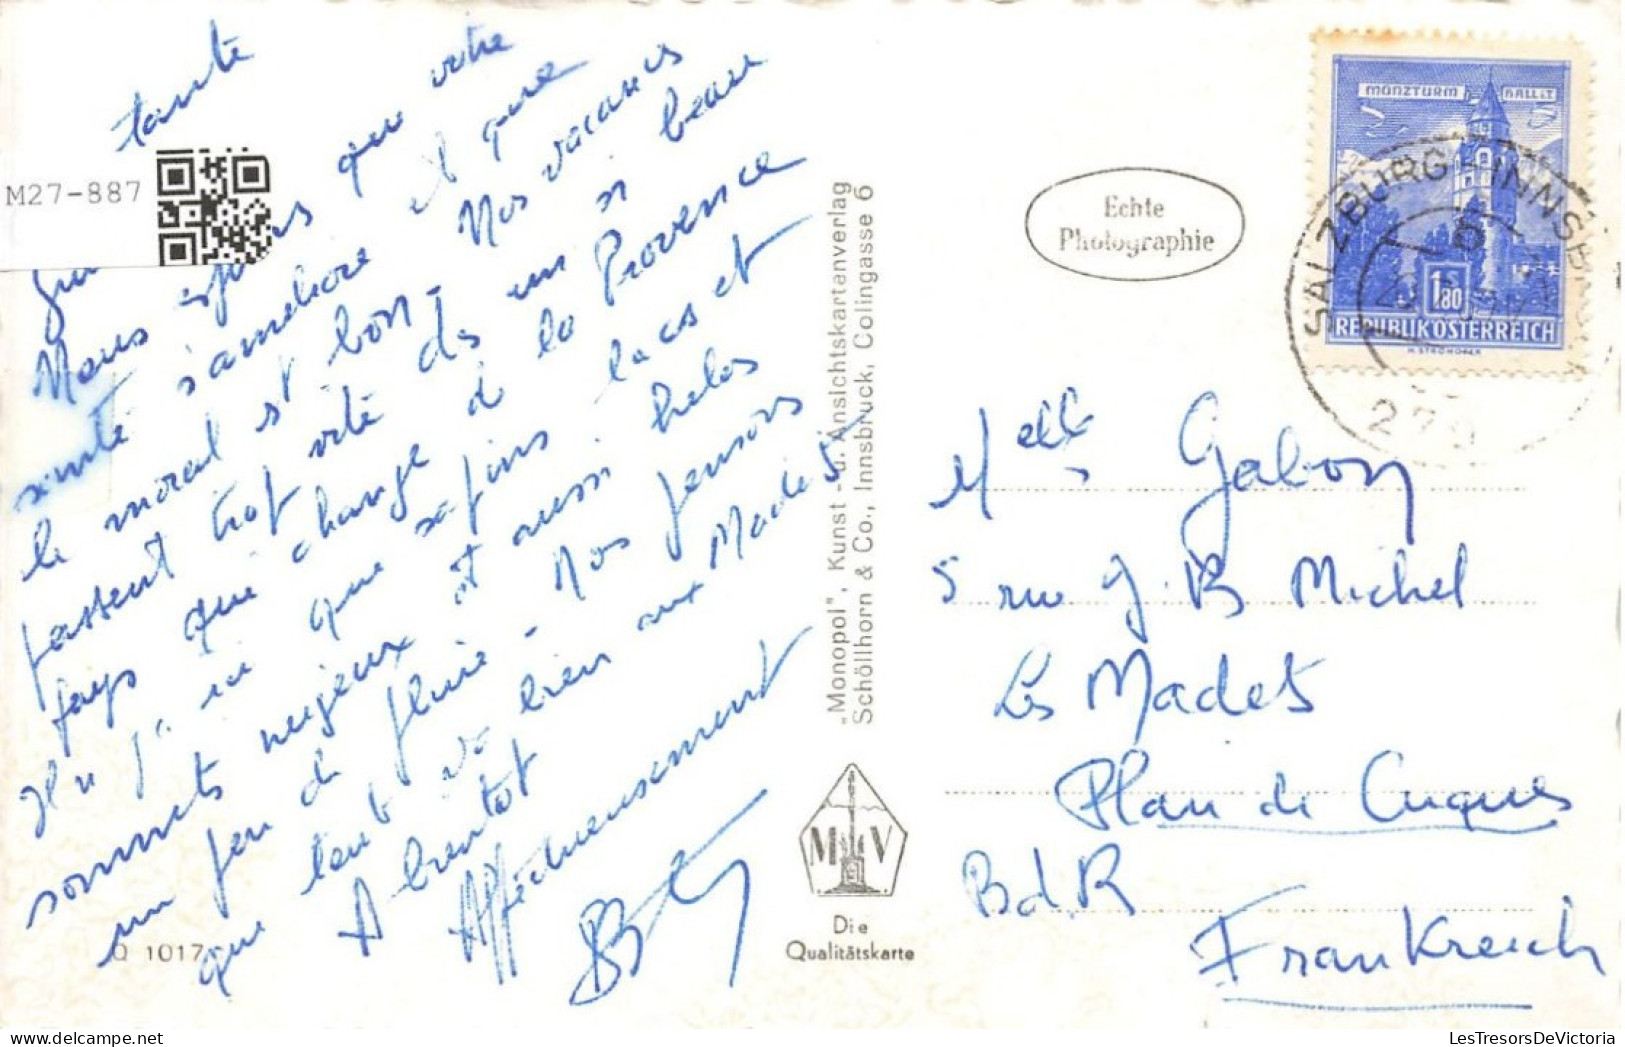 tante
M27-887
Nous espérons que votre
santé s'améliore et que
le moral est bon - Nos vacances
passent trop vite ds un si beau
pays qui change de la Provence
Il n'y a ici que sapins lacs et
sommets neigeux et aussi helas
un peu de pluie - Nos pensons
que tout va bien aux Madets
A bientot
Affectueusement
Q 1017
"Monopol", Kunst - u. Ansichtskartenverlag
Schöllhorn & Co., Innsbruck, Colingasse 6
M V
Die
Qualitätskarte
Echte
Photographie
MÜNZTURM HALL I.T.
1 S 80
REPUBLIK ÖSTERREICH
SALZBURG-INNSBRUCK
Melle Gabon
5 rue J. B Michel
Les Madets
Plan de Cuques
BdR
Frankreich
LesTresorsDeVictoria